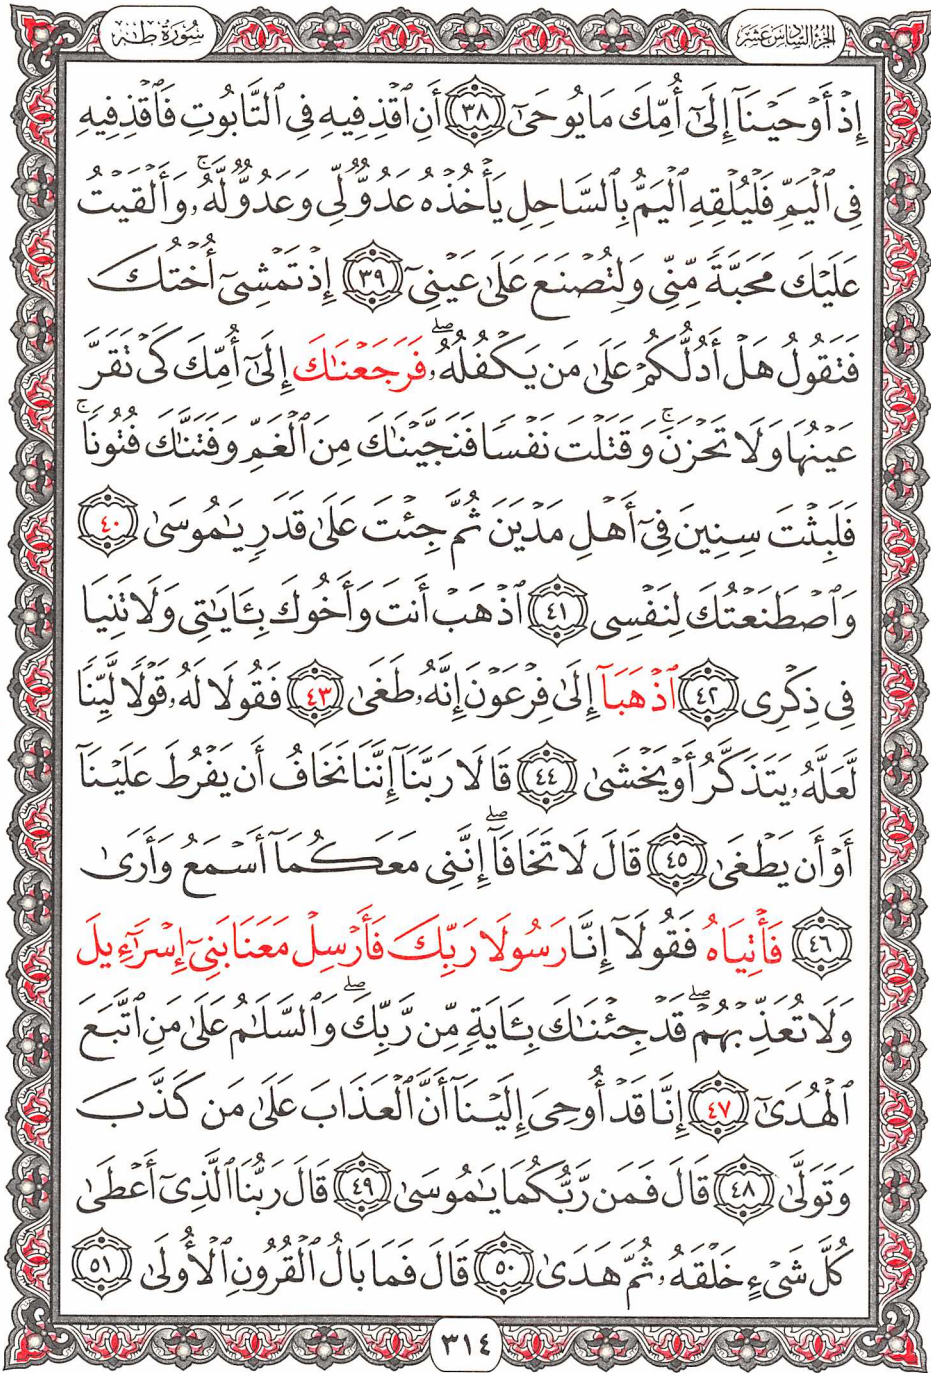 سُورَةُ طٰهٰ
الجزء السادس عشر
إِذْ أَوْحَيْنَآ إِلَىٰٓ أُمِّكَ مَا يُوحَىٰٓ ٣٨ أَنِ ٱقْذِفِيهِ فِى ٱلتَّابُوتِ فَٱقْذِفِيهِ
فِى ٱلْيَمِّ فَلْيُلْقِهِ ٱلْيَمُّ بِٱلسَّاحِلِ يَأْخُذْهُ عَدُوٌّ لِّى وَعَدُوٌّ لَّهُۥۚ وَأَلْقَيْتُ
عَلَيْكَ مَحَبَّةً مِّنِّى وَلِتُصْنَعَ عَلَىٰ عَيْنِىٓ ٣٩ إِذْ تَمْشِىٓ أُخْتُكَ
فَتَقُولُ هَلْ أَدُلُّكُمْ عَلَىٰ مَن يَكْفُلُهُۥۖ فَرَجَعْنَٰكَ إِلَىٰٓ أُمِّكَ كَىْ تَقَرَّ
عَيْنُهَا وَلَا تَحْزَنَۚ وَقَتَلْتَ نَفْسًا فَنَجَّيْنَٰكَ مِنَ ٱلْغَمِّ وَفَتَنَّٰكَ فُتُونًاۚ
فَلَبِثْتَ سِنِينَ فِىٓ أَهْلِ مَدْيَنَ ثُمَّ جِئْتَ عَلَىٰ قَدَرٍ يَٰمُوسَىٰ ٤٠
وَٱصْطَنَعْتُكَ لِنَفْسِى ٤١ ٱذْهَبْ أَنتَ وَأَخُوكَ بِـَٔايَٰتِى وَلَا تَنِيَا
فِى ذِكْرِى ٤٢ ٱذْهَبَآ إِلَىٰ فِرْعَوْنَ إِنَّهُۥ طَغَىٰ ٤٣ فَقُولَا لَهُۥ قَوْلًا لَّيِّنًا
لَّعَلَّهُۥ يَتَذَكَّرُ أَوْ يَخْشَىٰ ٤٤ قَالَا رَبَّنَآ إِنَّنَا نَخَافُ أَن يَفْرُطَ عَلَيْنَآ
أَوْ أَن يَطْغَىٰ ٤٥ قَالَ لَا تَخَافَآۖ إِنَّنِى مَعَكُمَآ أَسْمَعُ وَأَرَىٰ
٤٦ فَأْتِيَاهُ فَقُولَآ إِنَّا رَسُولَا رَبِّكَ فَأَرْسِلْ مَعَنَا بَنِىٓ إِسْرَٰٓءِيلَ
وَلَا تُعَذِّبْهُمْۖ قَدْ جِئْنَٰكَ بِـَٔايَةٍ مِّن رَّبِّكَۖ وَٱلسَّلَٰمُ عَلَىٰ مَنِ ٱتَّبَعَ
ٱلْهُدَىٰٓ ٤٧ إِنَّا قَدْ أُوحِىَ إِلَيْنَآ أَنَّ ٱلْعَذَابَ عَلَىٰ مَن كَذَّبَ
وَتَوَلَّىٰ ٤٨ قَالَ فَمَن رَّبُّكُمَا يَٰمُوسَىٰ ٤٩ قَالَ رَبُّنَا ٱلَّذِىٓ أَعْطَىٰ
كُلَّ شَىْءٍ خَلْقَهُۥ ثُمَّ هَدَىٰ ٥٠ قَالَ فَمَا بَالُ ٱلْقُرُونِ ٱلْأُولَىٰ ٥١
٣١٤